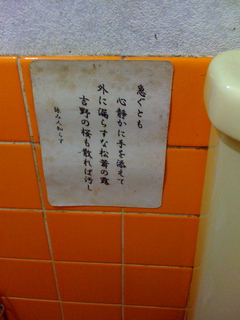 急ぐとも
心静かに手を添えて
外に漏らすな松茸の露
吉野の桜も散れば汚し
詠み人知らず